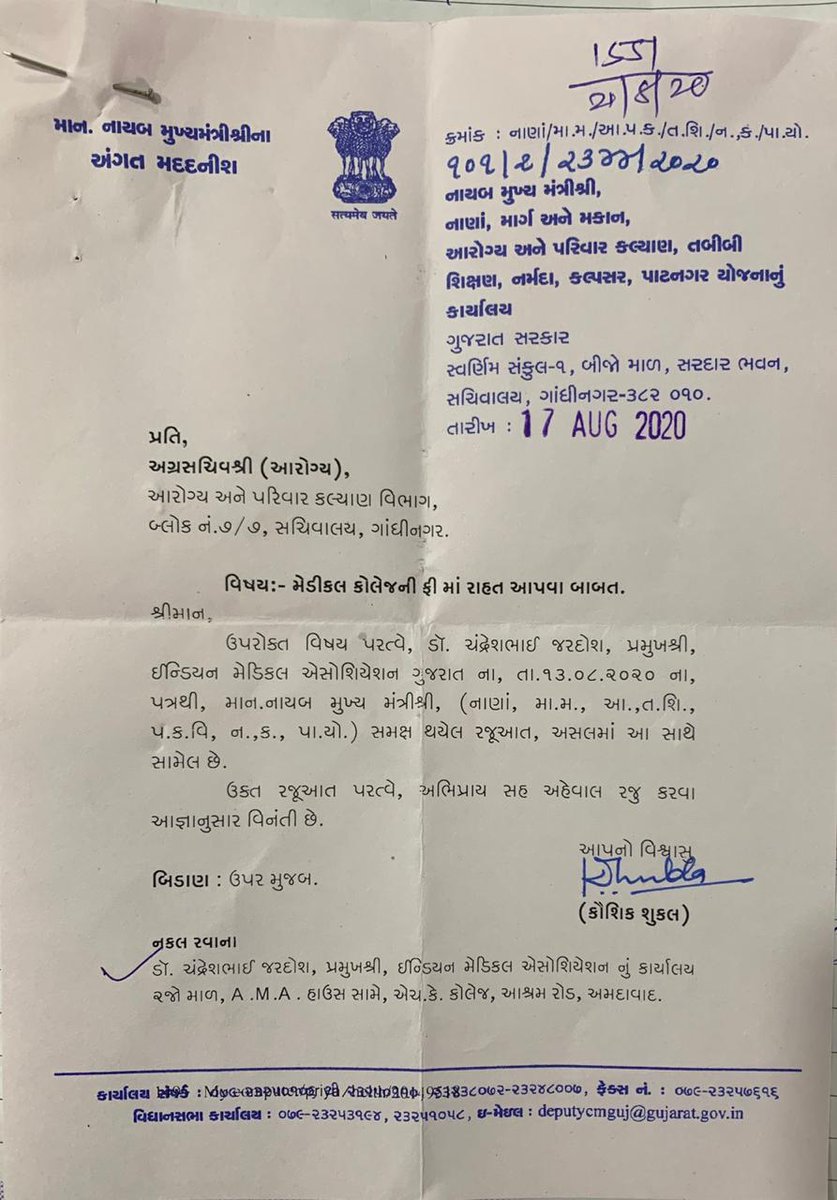 માન. નાયબ મુખ્યમંત્રીશ્રીના
અંગત મદદનીશ
सत्यमेव जयते
ક્રમાંક : નાણાં/મા.મ./આ.પ.ક./ત.શિ./ન.,ક./પા.યો.
નાયબ મુખ્ય મંત્રીશ્રી,
નાણાં, માર્ગ અને મકાન,
આરોગ્ય અને પરિવાર કલ્યાણ, તબીબી
શિક્ષણ, નર્મદા, કલ્પસર, પાટનગર યોજનાનું
કાર્યાલય
ગુજરાત સરકાર
સ્વર્ણિમ સંકુલ-૧, બીજો માળ, સરદાર ભવન,
સચિવાલય, ગાંધીનગર-૩૮૨ ૦૧૦.
તારીખ : 17 AUG 2020
પ્રતિ,
અગ્રસચિવશ્રી (આરોગ્ય),
આરોગ્ય અને પરિવાર કલ્યાણ વિભાગ,
બ્લોક નં.૭/૭, સચિવાલય, ગાંધીનગર.
વિષય:- મેડીકલ કોલેજની ફી માં રાહત આપવા બાબત.
શ્રીમાન,
ઉપરોક્ત વિષય પરત્વે, ડૉ. ચંદ્રેશભાઈ જરદોશ, પ્રમુખશ્રી,
ઈન્ડિયન મેડિકલ એસોશિયેશન ગુજરાત ના, તા.૧૩.૦૮.૨૦૨૦ ના,
પત્રથી, માન.નાયબ મુખ્ય મંત્રીશ્રી, (નાણાં, મા.મ., આ.,ત.શિ.,
પ.ક.વિ, ન.,ક., પા.યો.) સમક્ષ થયેલ રજૂઆત, અસલમાં આ સાથે
સામેલ છે.
ઉક્ત રજૂઆત પરત્વે, અભિપ્રાય સહ અહેવાલ રજુ કરવા
આજ્ઞાનુસાર વિનંતી છે.
આપનો વિશ્વાસુ
બિડાણ : ઉપર મુજબ.
(કૌશિક શુકલ)
નકલ રવાના
ડૉ. ચંદ્રેશભાઈ જરદોશ, પ્રમુખશ્રી, ઈન્ડિયન મેડિકલ એસોશિયેશન નું કાર્યાલય
૨જો માળ, A .M.A . હાઉસ સામે, એચ.કે. કોલેજ, આશ્રમ રોડ, અમદાવાદ.
કાર્યાલય સંપર્ક : ૨૩૨૪૮૦૦૭, ફેક્સ નં. : ૦૭૯-૨૩૨૫૭૬૧૬
વિધાનસભા કાર્યાલય : ૦૭૯-૨૩૨૫૩૧૯૪, ૨૩૨૫૧૦૫૮, ઇ-મેઇલ : deputycmguj@gujarat.gov.in